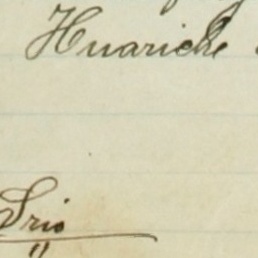 Huariche
Srio